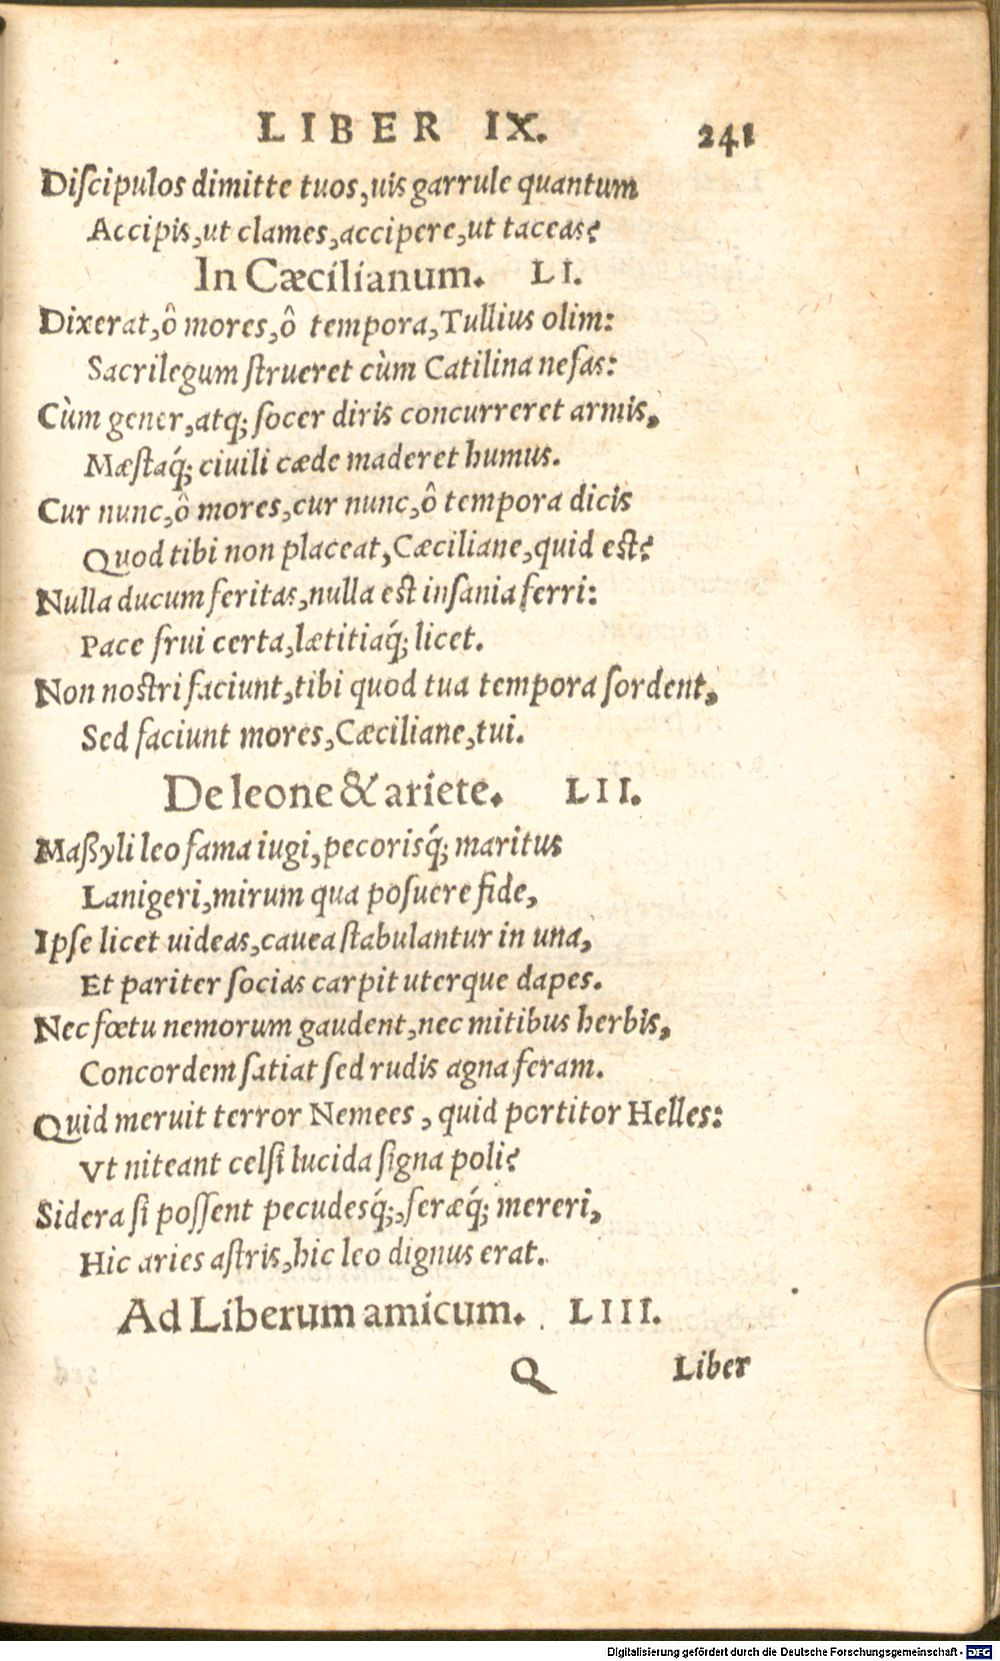 LIBER IX. 241
Diſcipulos dimitte tuos, uis garrule quantum
Accipis, ut clames, accipere, ut taceas?
In Cæcilianum. LI.
Dixerat, ô mores, ô tempora, Tullius olim:
Sacrilegum ſtrueret cùm Catilina nefas:
Cùm gener, atq; ſocer diris concurreret armis,
Mæſtaq́; ciuili cæde maderet humus.
Cur nunc, ô mores, cur nunc, ô tempora dicis
Quod tibi non placeat, Cæciliane, quid eſt?
Nulla ducum feritas, nulla eſt inſania ferri:
Pace frui certa, lætitiaq́; licet.
Non noſtri faciunt, tibi quod tua tempora ſordent,
Sed faciunt mores, Cæciliane, tui.
De leone & ariete. LII.
Maßyli leo fama iugi, pecorisq́; maritus
Lanigeri, mirum qua poſuere fide,
Ipſe licet uideas, cauea ſtabulantur in una,
Et pariter ſocias carpit uterque dapes.
Nec fœtu nemorum gaudent, nec mitibus herbis,
Concordem ſatiat ſed rudis agna feram.
Quid meruit terror Nemees, quid portitor Helles:
Vt niteant celſi lucida ſigna poli?
Sidera ſi poſſent pecudesq́;, feræq́; mereri,
Hic aries aſtris, hic leo dignus erat.
Ad Liberum amicum. LIII.
Q Liber
Digitalisierung gefördert durch die Deutsche Forschungsgemeinschaft - DFG